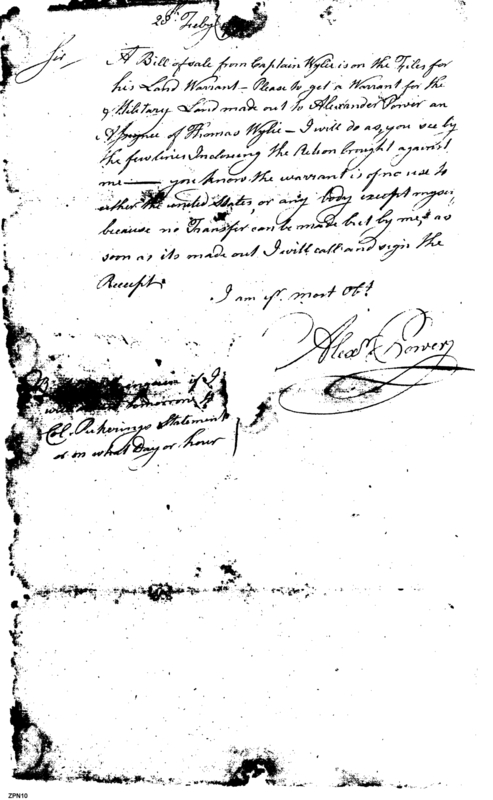 28th Feby
Sir
A Bill of sale from Captain Wylie is on the Files for
his Land Warrant – Please to get a Warrant for the
Military Land made out to Alexander Power an
Assignee of Thomas Wylie – I will do as you see by
the few lines Inclosing the Action brought against
me — you know the warrant is of no use to
either the united States, or any body except myself
because no Transfer can be made but by me, & as
soon as its made out I will call and sign the
Receipt
I am Sr. most Obt.
Alexr. Power
if I
will tomorrow
Col. Pickerings Statement
or on what Day or hour
ZPN10